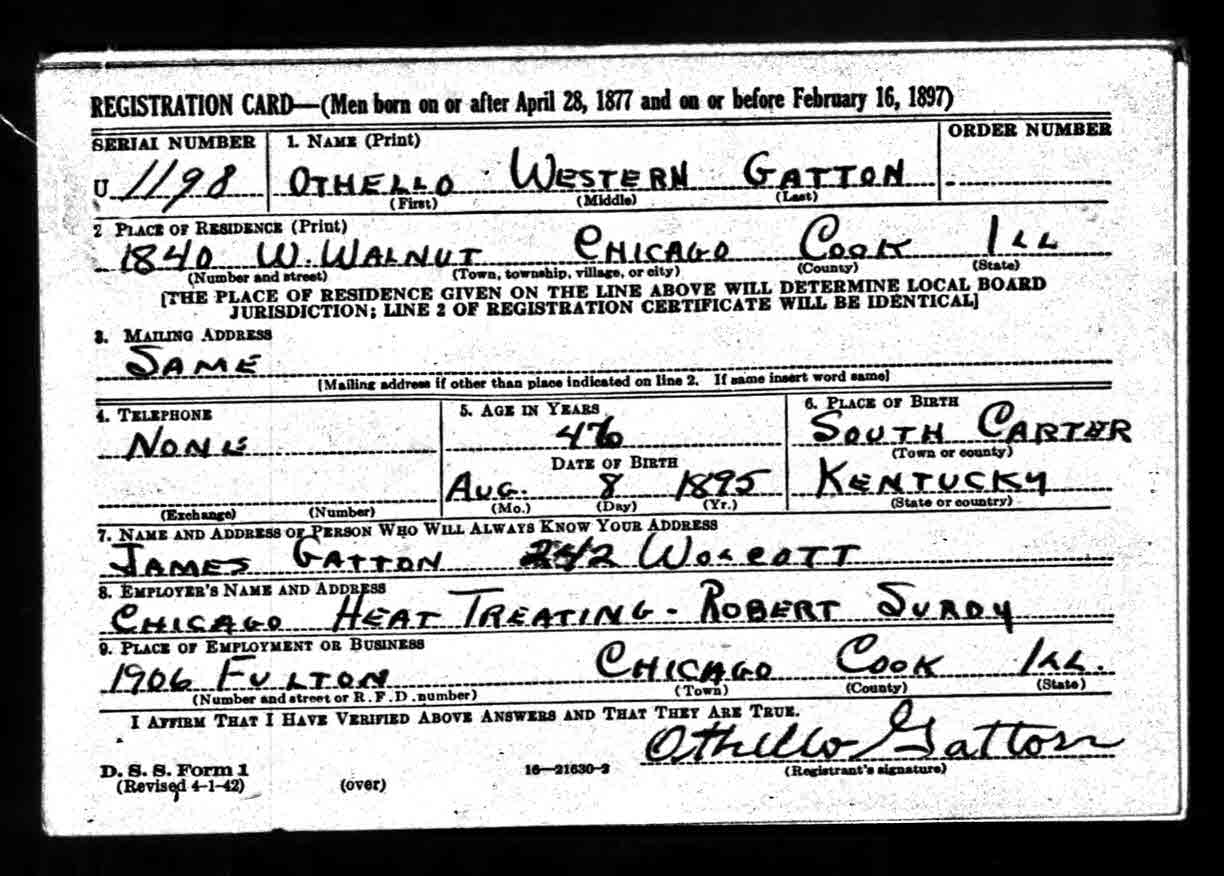 REGISTRATION CARD—(Men born on or after April 28, 1877 and on or before February 16, 1897)
SERIAL NUMBER 1. NAME (Print) ORDER NUMBER
U 1198 OTHELLO WESTERN GATTON
(First) (Middle) (Last)
2 PLACE OF RESIDENCE (Print)
1840 W. WALNUT CHICAGO COOK ILL
(Number and street) (Town, township, village, or city) (County) (State)
[THE PLACE OF RESIDENCE GIVEN ON THE LINE ABOVE WILL DETERMINE LOCAL BOARD
JURISDICTION; LINE 2 OF REGISTRATION CERTIFICATE WILL BE IDENTICAL]
3. MAILING ADDRESS
SAME
[Mailing address if other than place indicated on line 2. If same insert word same]
4. TELEPHONE 5. AGE IN YEARS 6. PLACE OF BIRTH
NONE 46 SOUTH CARTER
DATE OF BIRTH (Town or county)
AUG. 8 1895 KENTUCKY
(Exchange) (Number) (Mo.) (Day) (Yr.) (State or country)
7. NAME AND ADDRESS OF PERSON WHO WILL ALWAYS KNOW YOUR ADDRESS
JAMES GATTON 242 WOLCOTT
8. EMPLOYER'S NAME AND ADDRESS
CHICAGO HEAT TREATING - ROBERT SURDY
9. PLACE OF EMPLOYMENT OR BUSINESS
1906 FULTON CHICAGO COOK ILL.
(Number and street or R. F. D. number) (Town) (County) (State)
I AFFIRM THAT I HAVE VERIFIED ABOVE ANSWERS AND THAT THEY ARE TRUE.
Othello Gatton
D. S. S. Form 1 16—21630-2 (Registrant's signature)
(Revised 4-1-42) (over)